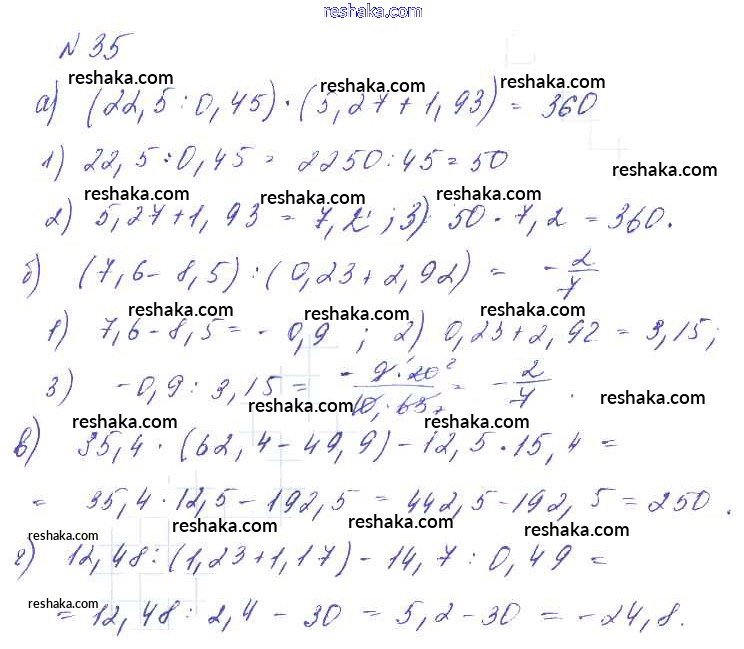 www.reshaka.com
№ 35
reshaka.com
reshaka.com
reshaka.com
а) (22,5:0,45)·(5,27+1,93) = 360
reshaka.com
reshaka.com
1) 22,5:0,45 = 2250:45 = 50
reshaka.com
reshaka.com
reshaka.com
2) 5,27+1,93 = 7,2 ; 3) 50·7,2 = 360.
б) (7,6-8,5):(0,23+2,92) = -2/7
reshaka.com
reshaka.com
reshaka.com
1) 7,6-8,5 = -0,9 ; 2) 0,23+2,92 = 3,15;
3) -0,9:3,15 = -9·20²/10·63₇ = -2/7.
reshaka.com
reshaka.com
reshaka.com
reshaka.com
в) 35,4·(62,4-49,9)-12,5·15,4 =
= 35,4·12,5-192,5 = 442,5-192,5 = 250.
reshaka.com
reshaka.com
reshaka.com
reshaka.com
г) 12,48:(1,23+1,17)-14,7:0,49 =
reshaka.com
reshaka.com
reshaka.com
= 12,48:2,4-30 = 5,2-30 = -24,8.
reshaka.com
reshaka.com
reshaka.com